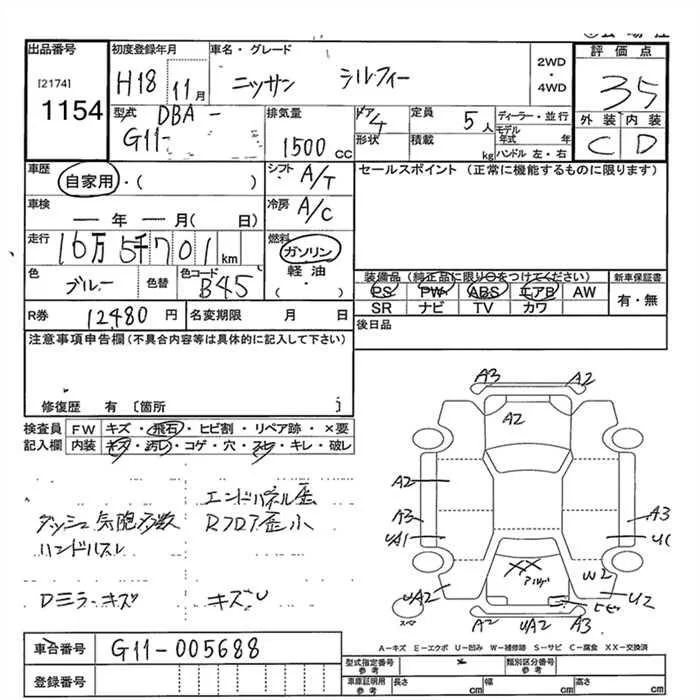 出品番号 初度登録年月 車名・グレード 2WD・4WD 評価点
[2174] 1154
H18 11月 ニッサン シルフィー 35
型式 DBA- 排気量 ドア 4 定員 5人 ディーラー・並行 外装 内装
G11- 1500cc 形状 積載 kg モデル年式 年 C D
ハンドル 左・右
車歴 自家用・( ) シフト A/T セールスポイント (正常に機能するものに限ります)
車検 ー年ー月( 日) 冷房 A/C
走行 16万5千701km 燃料 ガソリン・軽油・( )
色 ブルー 色替 色コード B45
装備品(純正品に限り○をつけてください) 新車保証書
PS PW ABS エアB AW 有・無
SR ナビ TV カワ
R券 12,480円 名変期限 月 日 後日品
注意事項申告欄(不具合内容等は具体的に記入して下さい)
修復歴 有〔箇所 〕
検査員記入欄 FW キズ・飛石・ヒビ割・リペア跡・×要
内装 キズ・汚れ・コゲ・穴・スレ・キレ・破レ
エンドパネル歪
ダッシュ気泡多数 Rフロア歪小
ハンドルスレ
Dミラーキズ キズU
A3 A2
A2
A2
A3 A3
UA1 U
XX W2
UA2 U2
スペア
A2 UA2 A3
車台番号 G11-005688
登録番号
A−キズ E−エクボ U−凹み W−補修跡 S−サビ C−腐食 XX−交換済
型式指定番号 参考 類別区分番号 参考
車庫証明用 参考 長さ cm 幅 cm 高さ cm